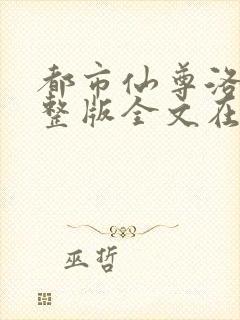 都市仙尊洛
整版全文在
巫哲